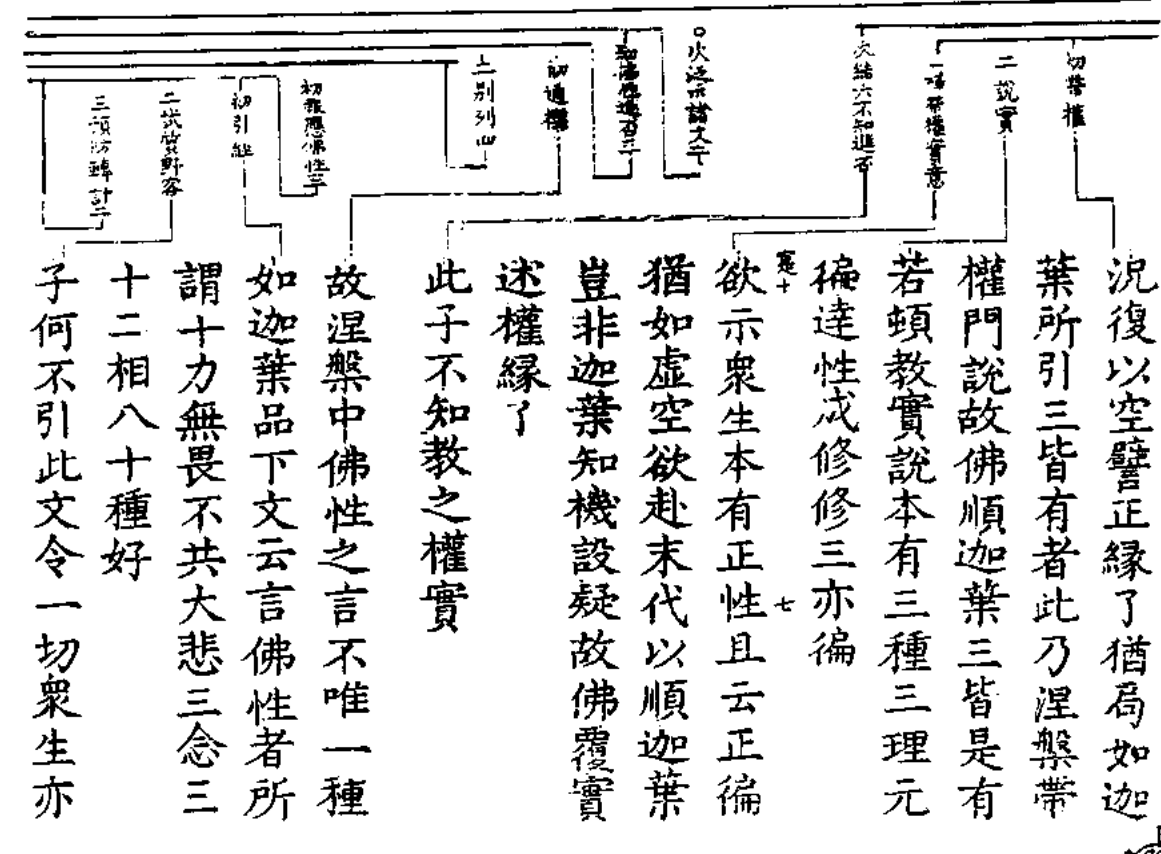 初帶權
二說實
次結六不知進否
○次泛示諸文二
初通攉
二別列四
初引經
三預防轉計二
況復以空譬正緣了猶局如迦
葉所引三皆有者此乃涅槃帶
權門說故佛順迦葉三皆是有
若頓教實說本有三種三理元
徧達性成修修三亦徧
十
七
欲示衆生本有正性且云正徧
猶如虛空欲赴末代以順迦葉
豈非迦葉知機設疑故佛覆實
述權緣了
此子不知教之權實
故涅槃中佛性之言不唯一種
如迦葉品下文云言佛性者所
謂十力無畏不共大悲三念三
十二相八十種好
子何不引此文令一切衆生亦